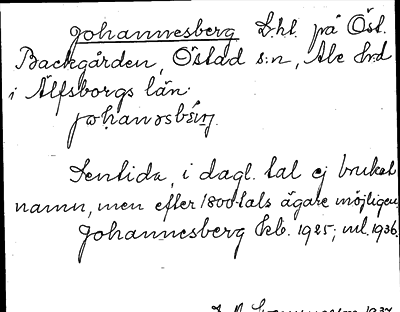 Johannesberg Lht. på Öst.
Backgården, Östad s:n, Ale hd
i Älfsborgs län.
johanəsbærj.
Sentida, i dagl. tal ej brukat
namn, men efter 1800-tals ägare möjligen
Johannesberg kb. 1925; ml. 1936.